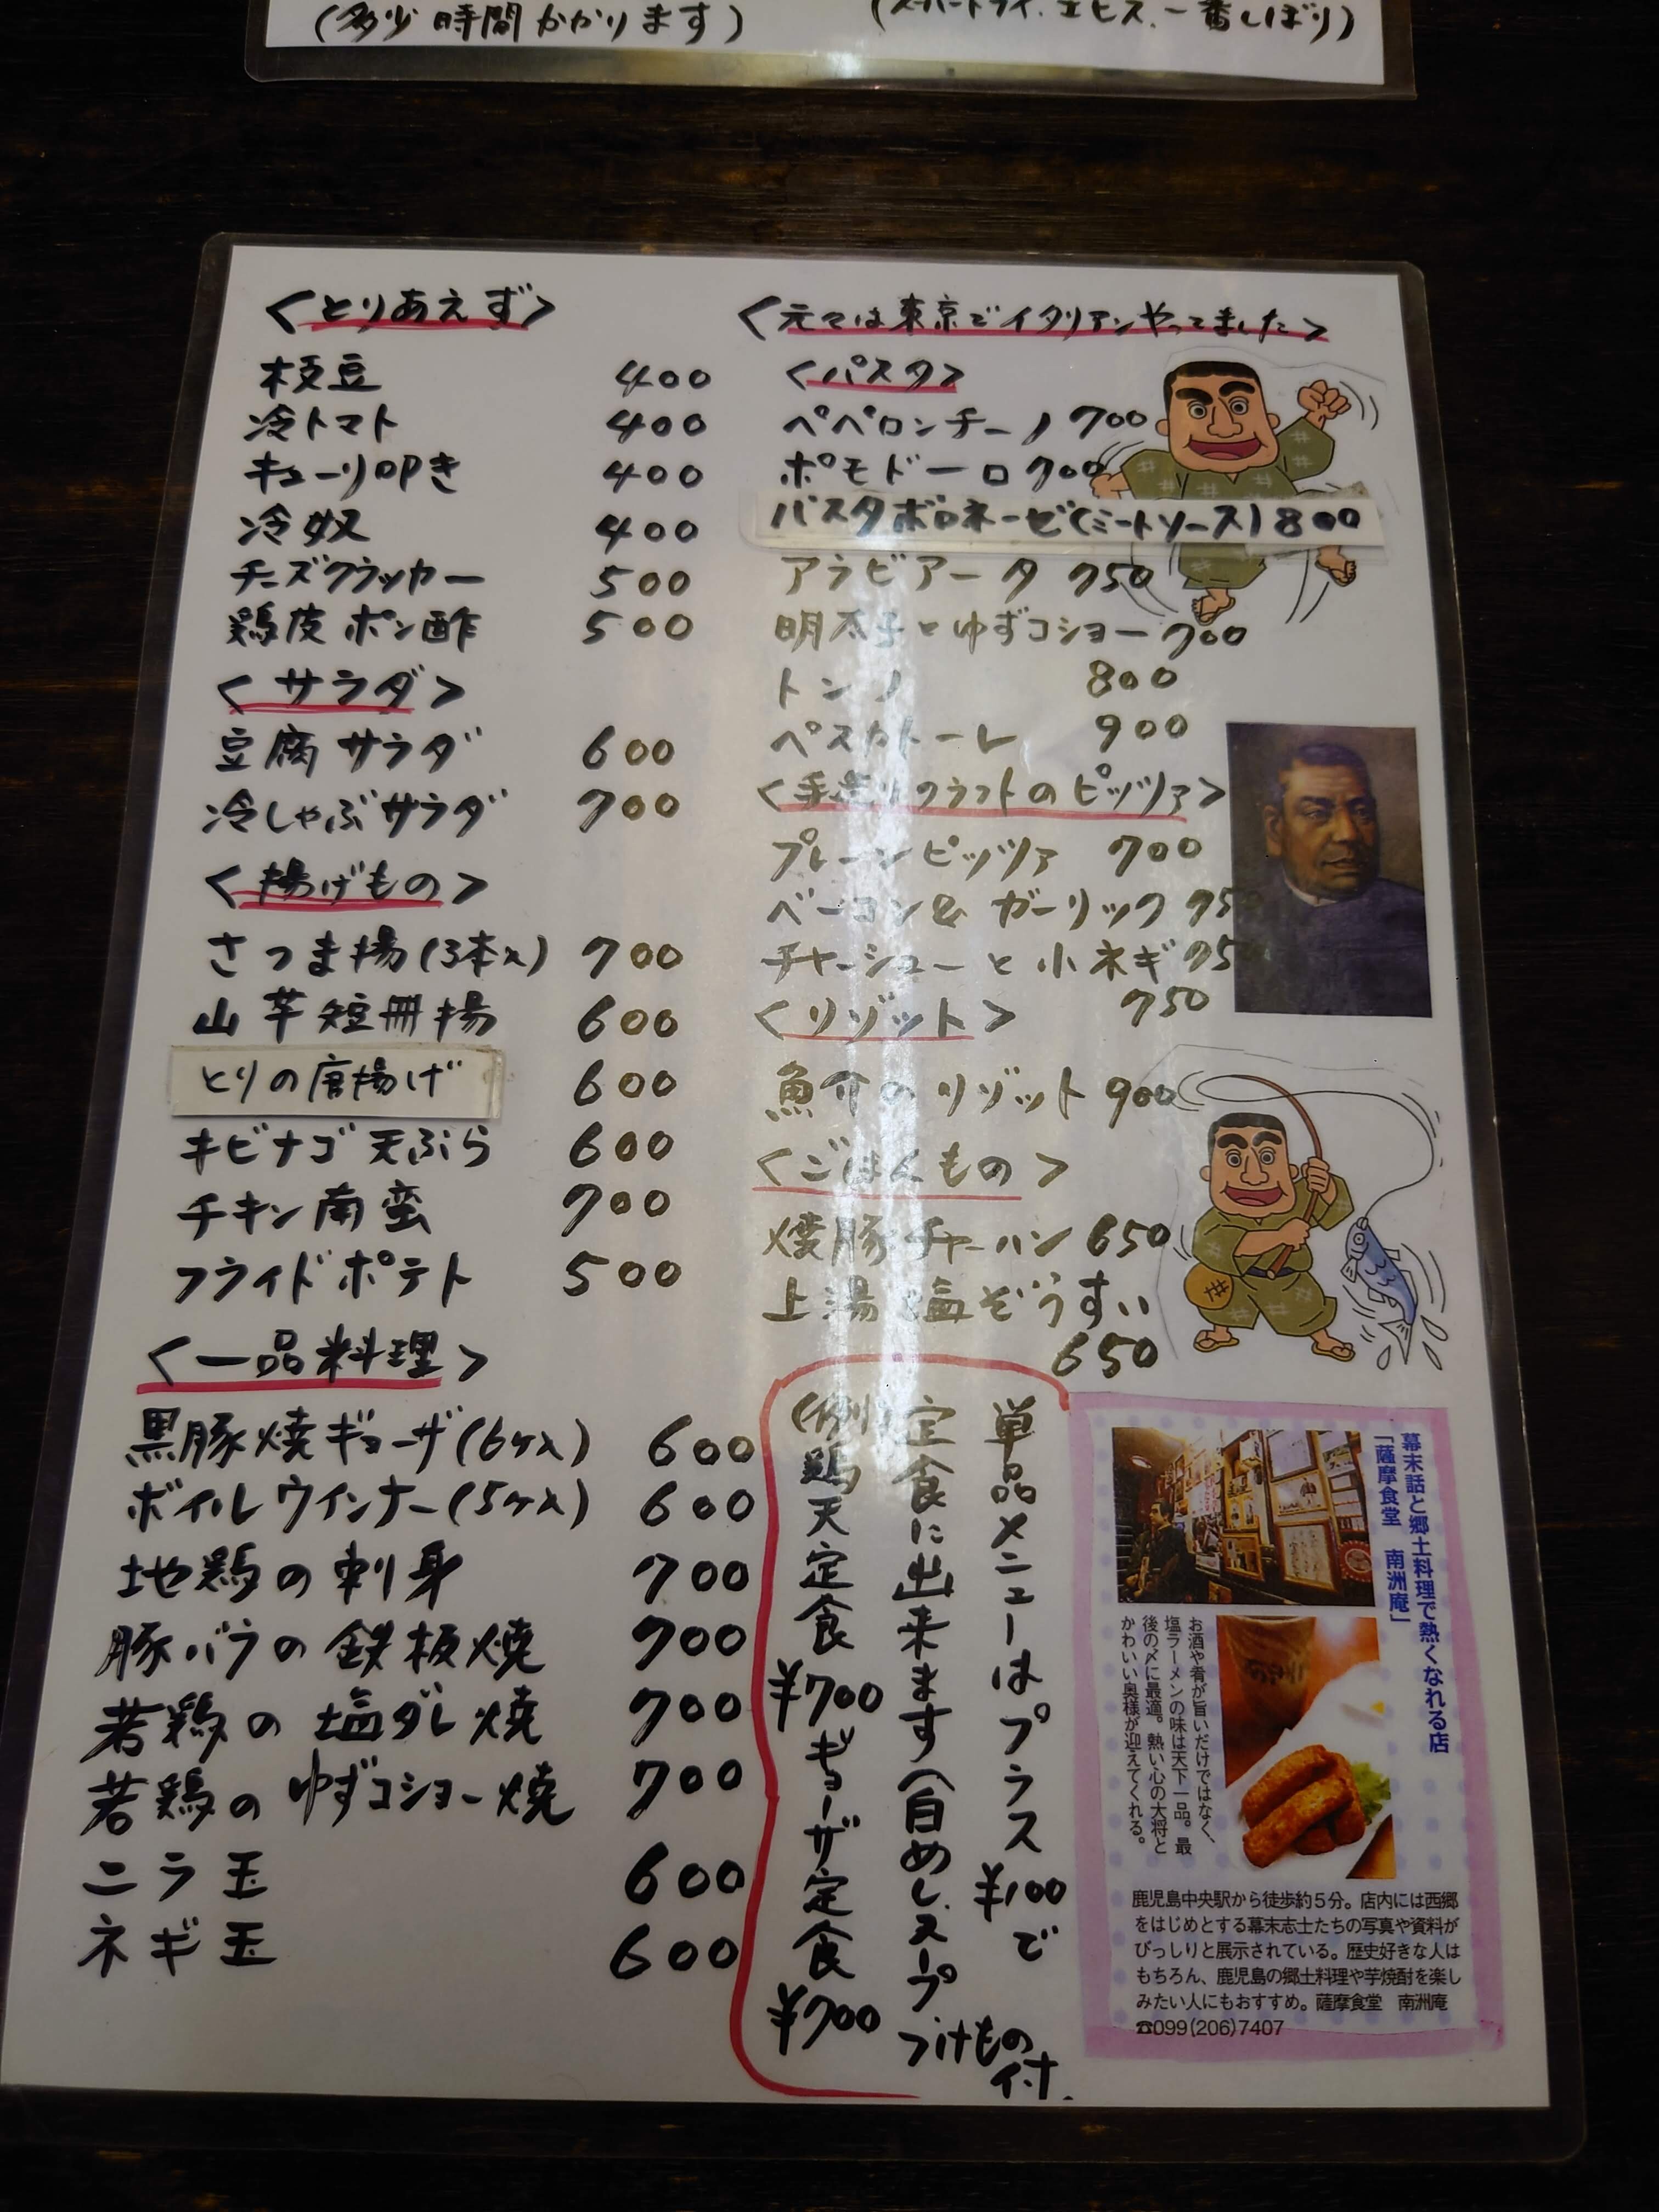 (多少時間かかります)
(スーパードライ.エビス.一番しぼり)
<とりあえず>
枝豆 400
冷トマト 400
キューリ叩き 400
冷奴 400
チーズクラッカー 500
鶏皮ポン酢 500
<サラダ>
豆腐サラダ 600
冷しゃぶサラダ 700
<揚げもの>
さつま揚(3本入) 700
山芋短冊揚 600
とりの唐揚げ 600
キビナゴ天ぷら 600
チキン南蛮 700
フライドポテト 500
<一品料理>
黒豚焼ギョーザ(6ヶ入) 600
ボイルウインナー(5ヶ入) 600
地鶏の刺身 700
豚バラの鉄板焼 700
若鶏の塩ダレ焼 700
若鶏のゆずコショー焼 700
ニラ玉 600
ネギ玉 600
<元々は東京でイタリアンやってました>
<パスタ>
ペペロンチーノ 700
ポモドーロ 700
パスタボロネーゼ(ミートソース) 800
アラビアータ 750
明太子とゆずコショー 700
トンノ 800
ペスカトーレ 900
<手造りクラフトのピッツァ>
プレーンピッツァ 700
ベーコン&ガーリック 750
チャーシューと小ネギ 750
750
<リゾット>
魚介のリゾット 900
<ごはんもの>
焼豚チャーハン 650
上湯塩ぞうすい
650
単品メニューはプラス¥100で
定食に出来ます(白めし.スープ
つけもの付.
(例)鶏天定食¥700 ギョーザ定食¥700
幕末話と郷土料理で熱くなれる店
「薩摩食堂 南洲庵」
お酒や肴が旨いだけではなく、
塩ラーメンの味は天下一品。最
後の〆に最適。熱い心の大将と
かわいい奥様が迎えてくれる。
鹿児島中央駅から徒歩約5分。店内には西郷
をはじめとする幕末志士たちの写真や資料が
びっしりと展示されている。歴史好きな人は
もちろん、鹿児島の郷土料理や芋焼酎を楽し
みたい人にもおすすめ。薩摩食堂 南洲庵
☎099(206)7407